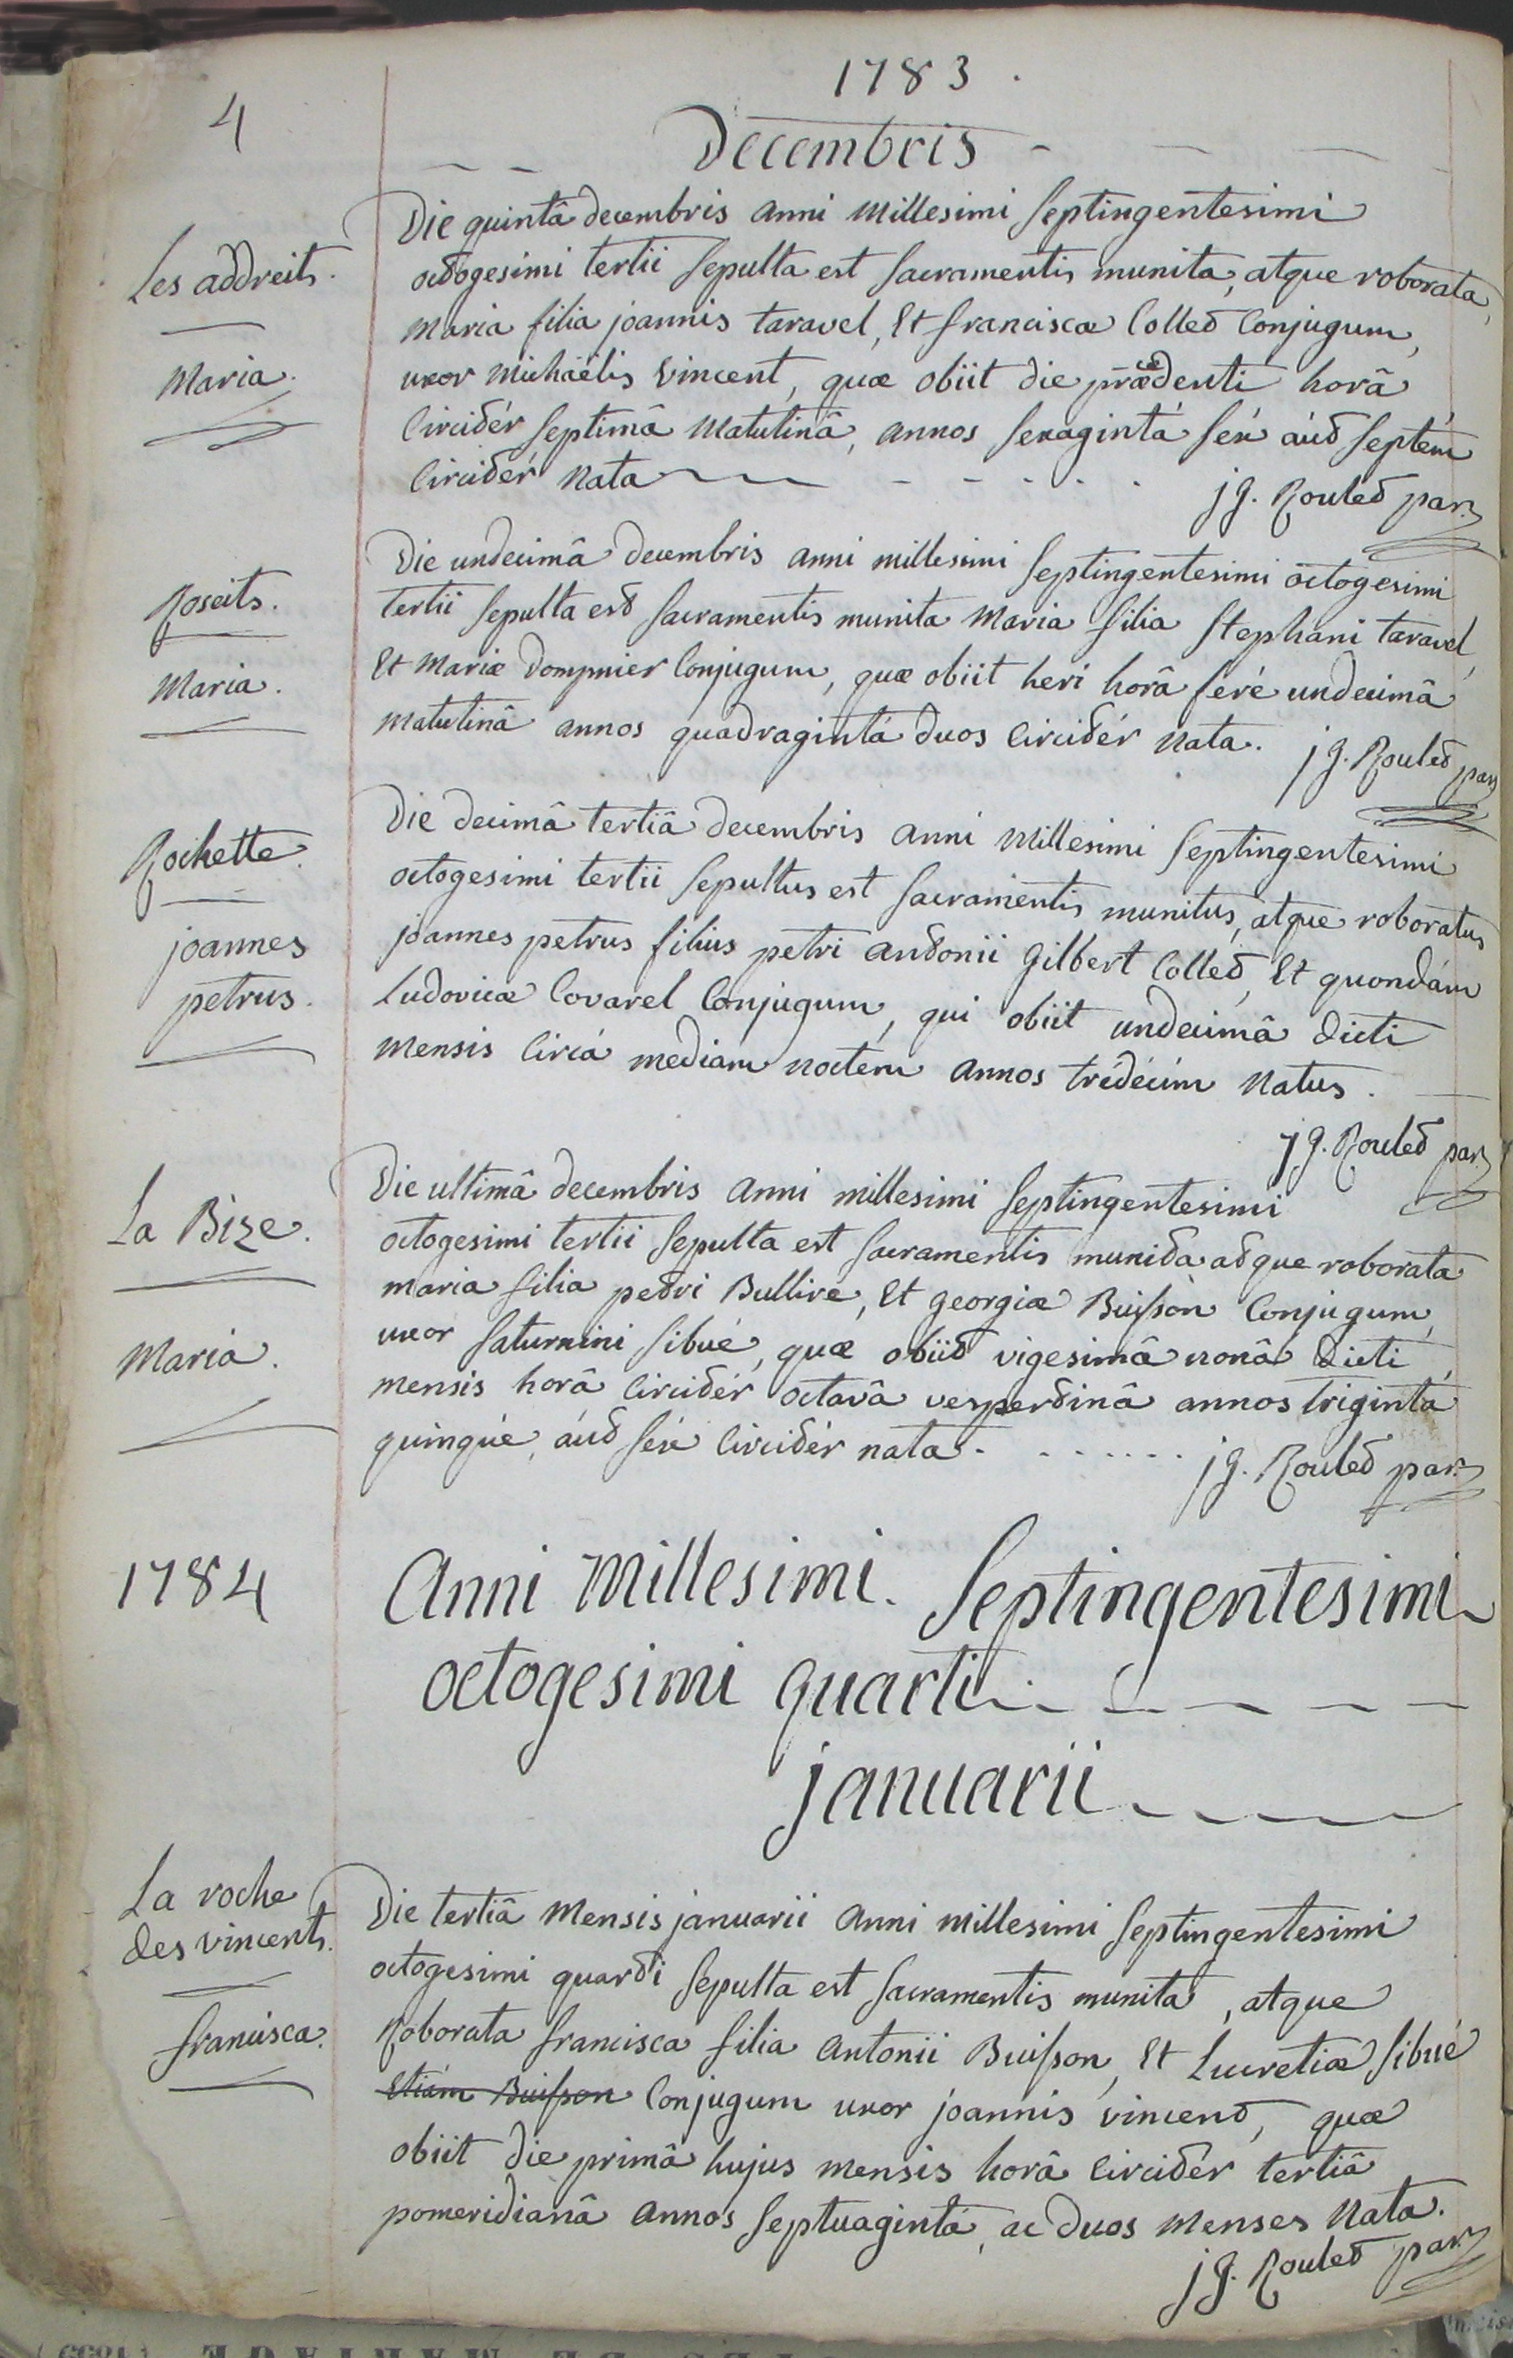 4
1783.
Decembris
Les addreits.
Maria.
Die quintâ decembris anni millesimi septingentesimi
octogesimi tertii sepulta est sacramentis munita, atque roborata,
Maria filia joannis taravel, Et franciscæ Collet Conjugum,
uxor michaëlis vincent, quæ obiit die præcedenti horâ
Circitèr septimâ matutinâ, annos sexagintà sex aùt septèm
Circitèr nata
j g. Roulet par.
Roseits.
Maria.
Die undecimâ decembris anni millesimi septingentesimi octogesimi
tertii sepulta est sacramentis munita Maria filia stephani taravel,
Et Mariæ Dompnier Conjugum, quæ obiit heri horâ ferè undecimâ
matutinâ annos quadragintà duos Circitèr nata.
j g. Roulet par
Rochette.
joannes
petrus.
Die decimâ tertiâ decembris anni Millesimi septingentesimi
octogesimi tertii sepultus est sacramentis munitus, atque roboratus
joannes petrus filius petri antonii gilbert Collet, Et quondàm
Ludovicæ Covarel Conjugum, qui obiit undecimâ dicti
mensis Circà mediam noctem annos trédécim natus.
j g. Roulet par.
La Bize.
Maria.
Die ultimâ decembris anni millesimi septingentesimi
octogesimi tertii sepulta est sacramentis munita atque roborata
maria filia petri Bullire, Et georgiæ Buisson Conjugum,
uxor saturnini sibué, quæ obiit vigesimâ nonâ dicti
mensis horâ Circitèr octavâ vespertinâ annos trigintà
quinqùe, aùt sex Circitèr nata.
j g. Roulet par.
1784
Anni Millesimi. Septingentesimi
octogesimi quarti
januarii
La roche
des vincents.
francisca.
Die tertiâ Mensis januarii anni millesimi septingentesimi
octogesimi quarti sepulta est sacramentis munita, atque
Roborata francisca filia antonii Buisson, Et Lucretiæ sibué
Etiàm Buisson Conjugum uxor joannis vincent, quæ
obiit die primâ hujus mensis horâ Circitèr tertiâ
pomeridianâ annos septuagintà, ac duos menses nata.
j g. Roulet par.